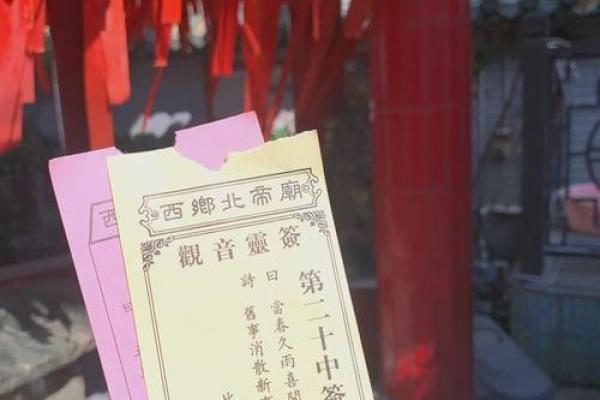 西鄉北帝廟
觀音靈簽
第二十中簽
曰 當春久雨喜開
詩 舊事消散新事
西
曰